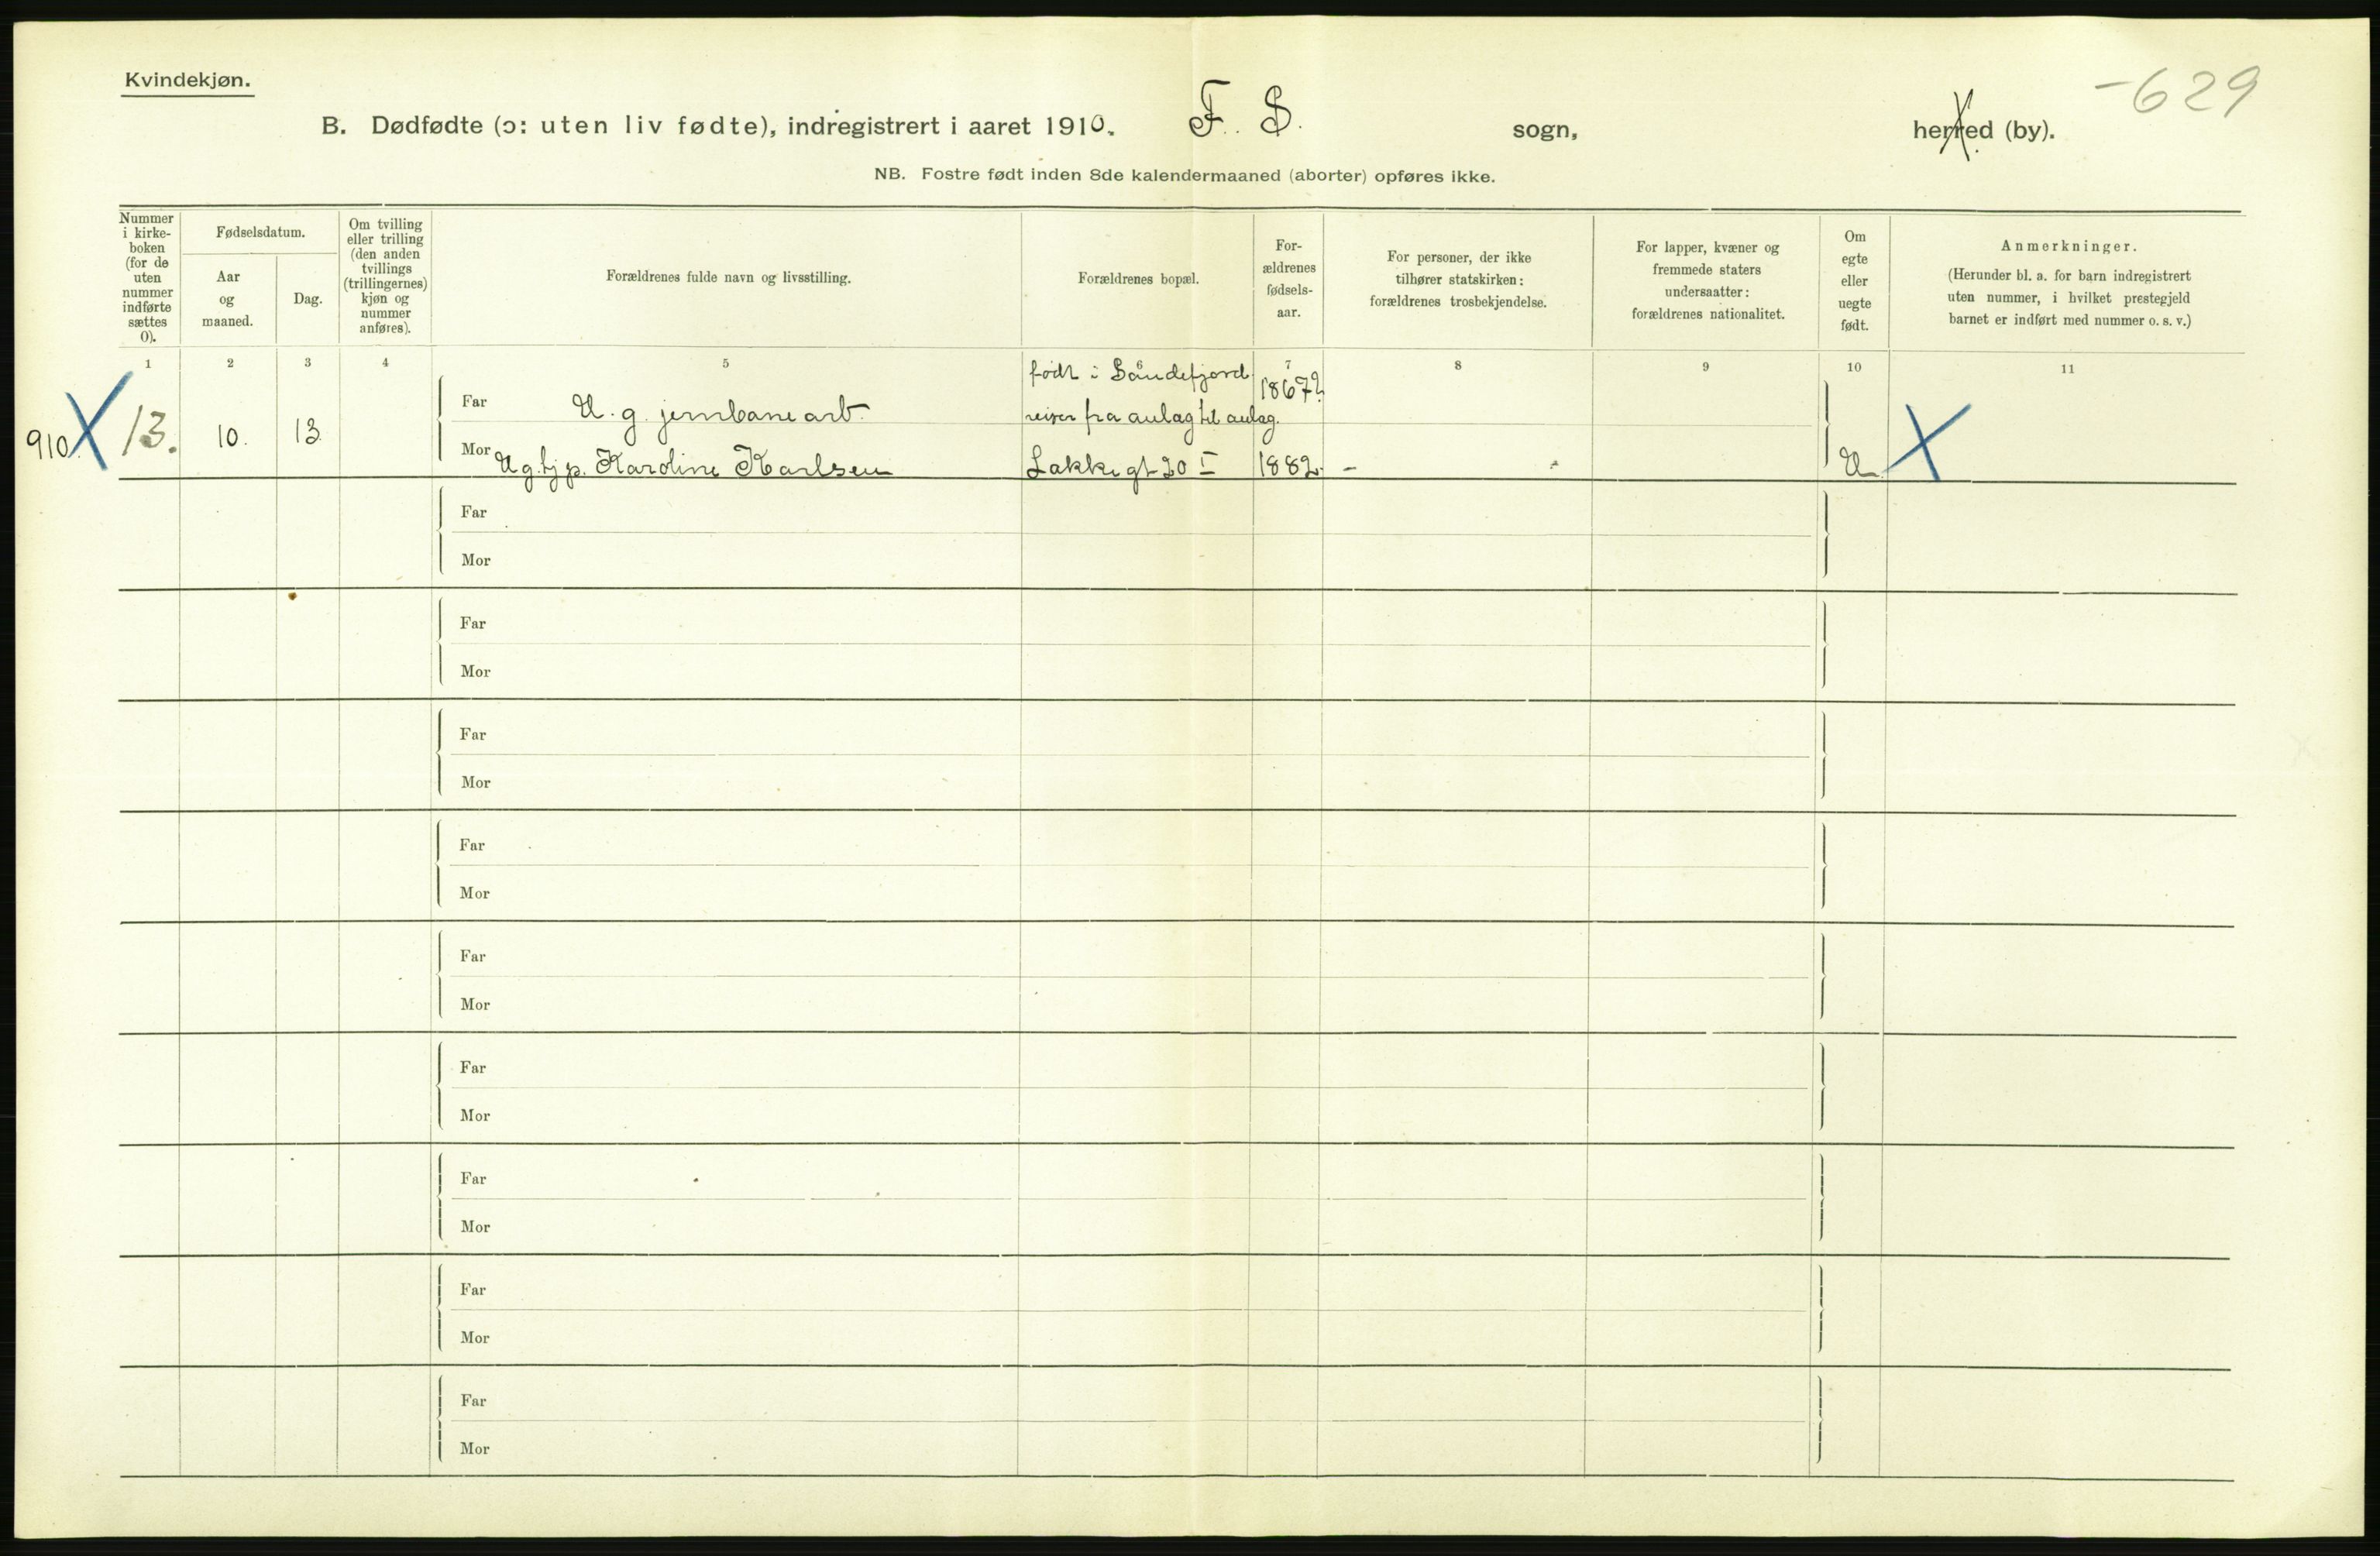 Kvindekjøn.
-629
B. Dødfødte (ɔ: uten liv fødte), indregistrert i aaret 1910. F. S. sogn, herred (by).
NB. Fostre født inden 8de kalendermaaned (aborter) opføres ikke.
Nummer
i kirke-
boken
(for de
uten
nummer
indførte
sættes
0).
Fødselsdatum.
Aar
og
maaned.
Dag.
Om tvilling
eller trilling
(den anden
tvillings
(trillingernes)
kjøn og
nummer
anføres).
Forældrenes fulde navn og livsstilling.
Forældrenes bopæl.
For-
ældrenes
fødsels-
aar.
For personer, der ikke
tilhører statskirken:
forældrenes trosbekjendelse.
For lapper, kvæner og
fremmede staters
undersaatter:
forældrenes nationalitet.
Om
egte
eller
uegte
født.
Anmerkninger.
(Herunder bl. a. for barn indregistrert
uten nummer, i hvilket prestegjeld
barnet er indført med nummer o. s. v.)
1 2 3 4 5 7 8 9 10 11
født i Sandefjord 1867?
Far U. g. jernbanearb. reiser fra anlag til anlag.
910. X 13. 10. 13.
Mor Ug. tjp. Karoline Karlsen Lakkegt 20 I 1882. - U X
Far
Mor
Far
Mor
Far
Mor
Far
Mor
Far
Mor
Far
Mor
Far
Mor
Far
Mor
Far
Mor